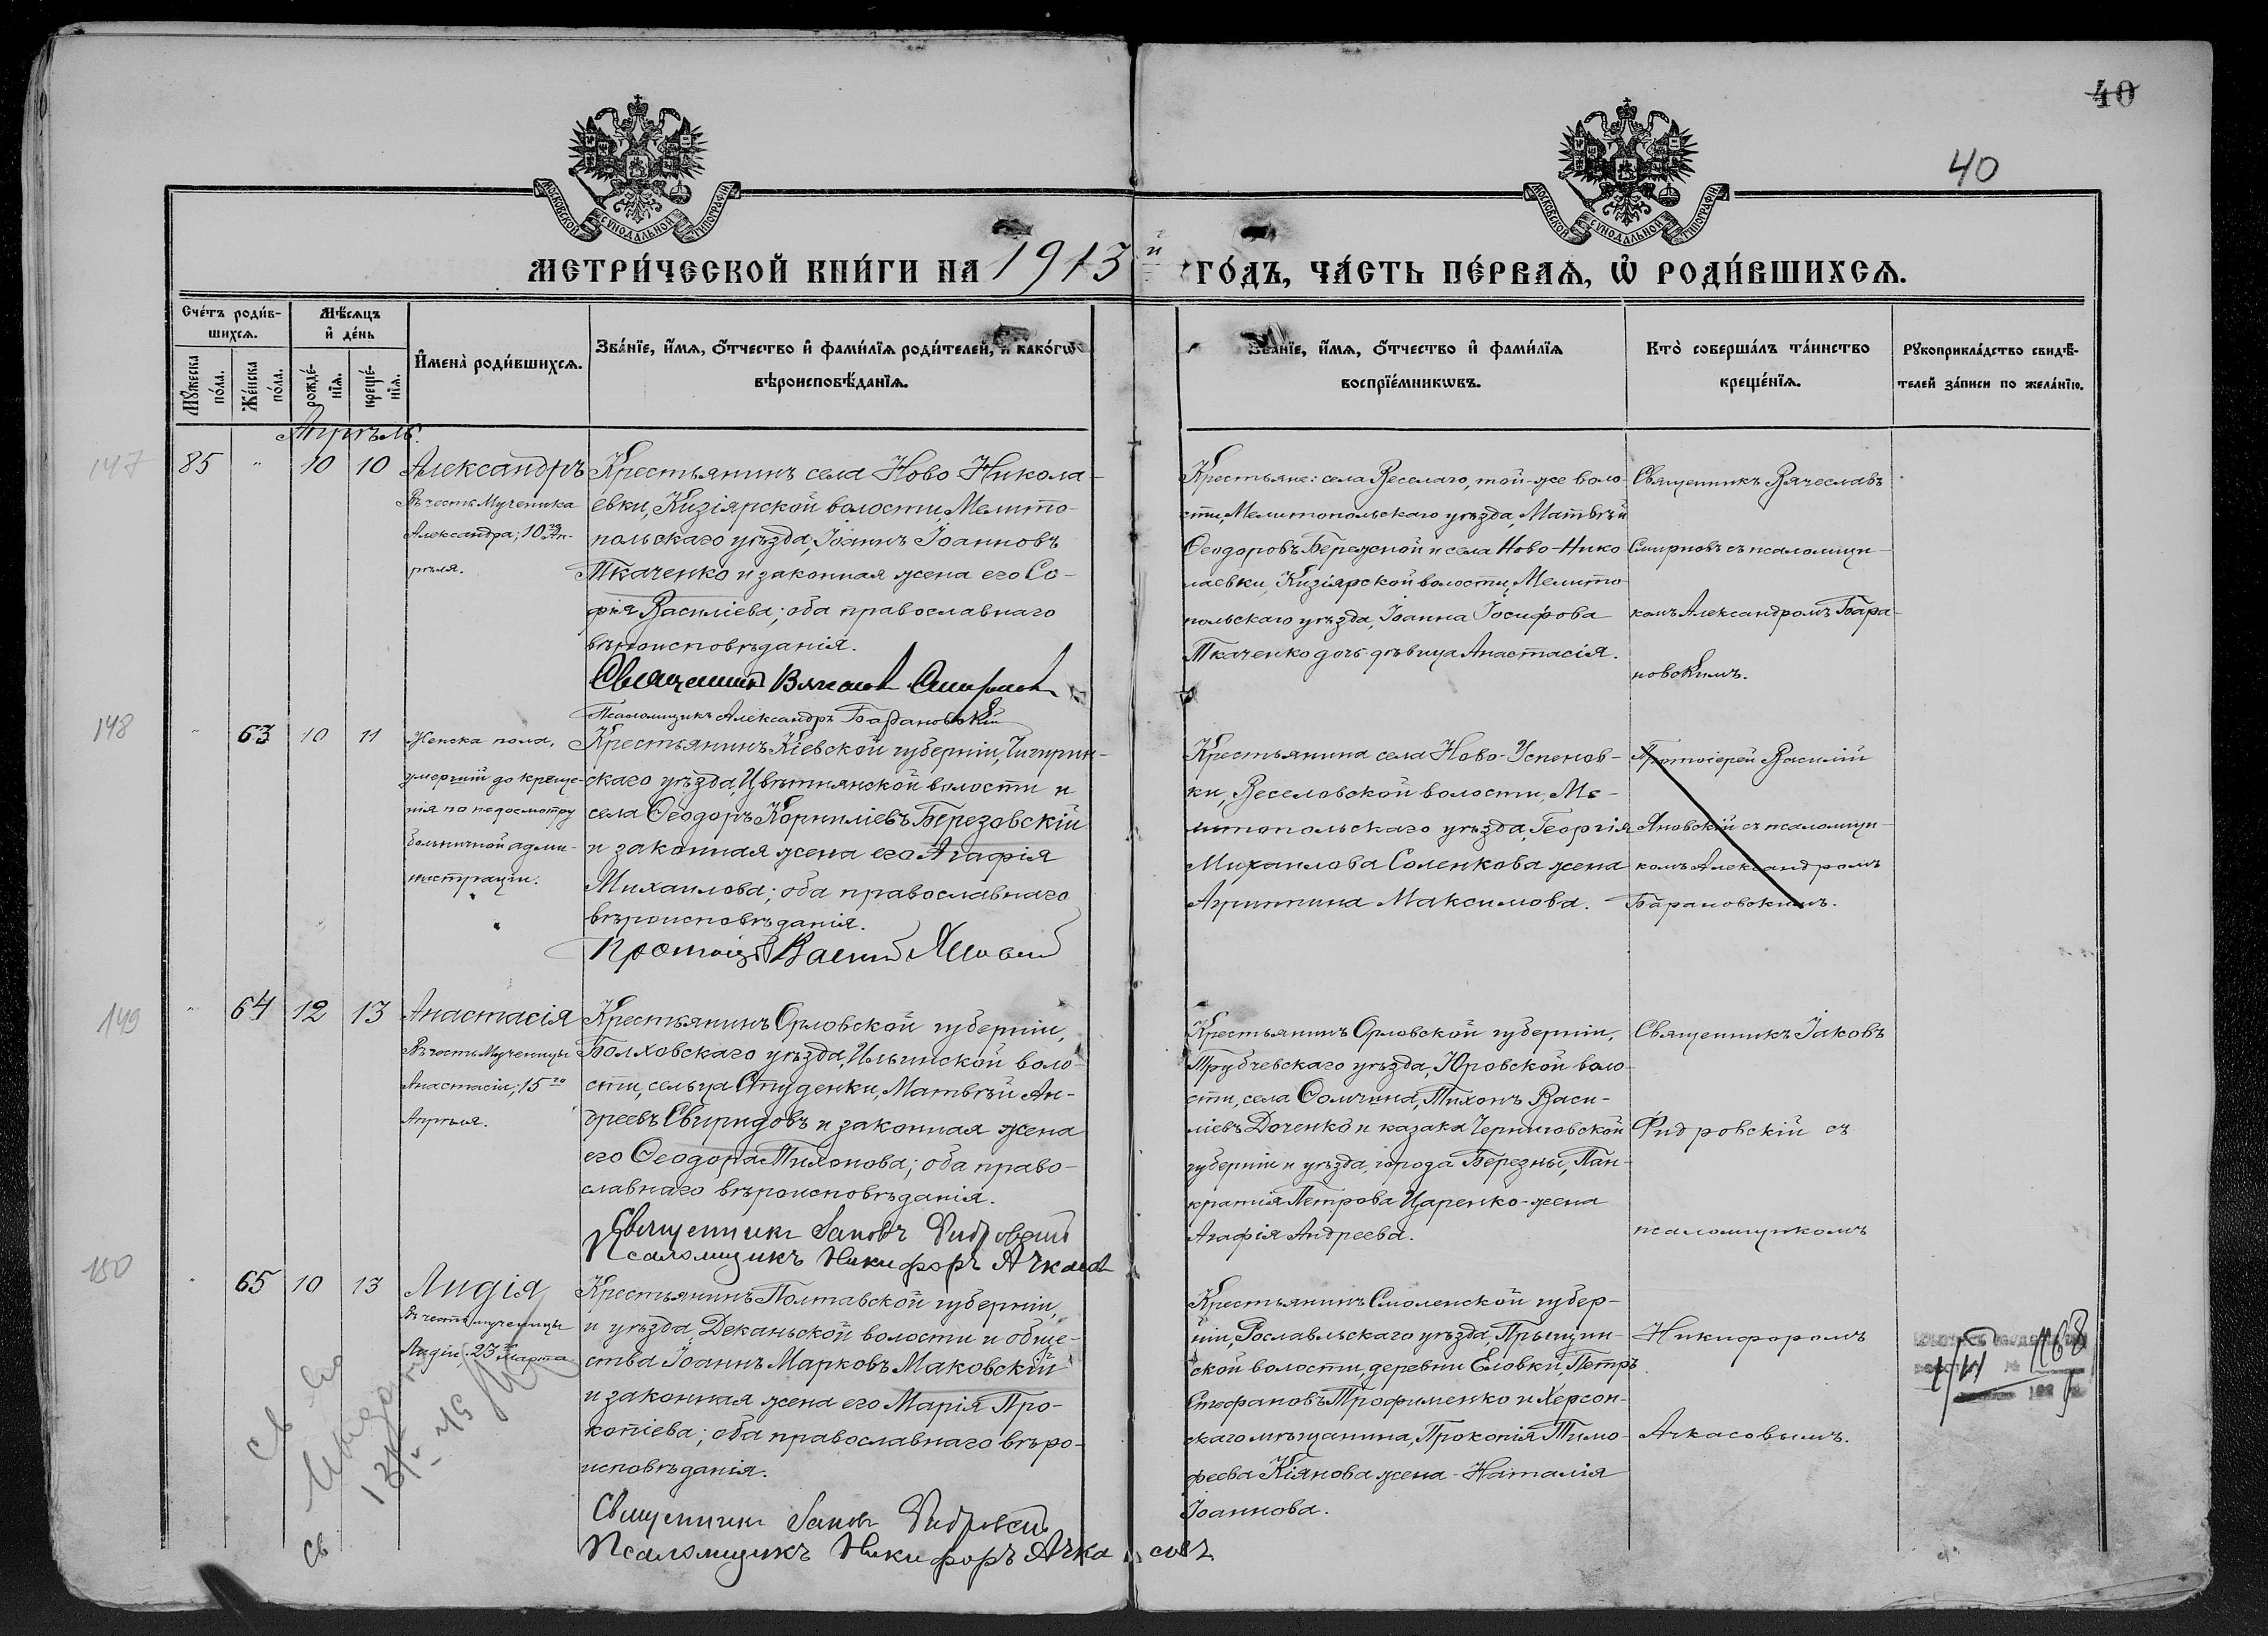 40
40
МОСКОВСКОЙ СѴНОДАЛЬНОЙ ТИПОГРАФІИ
МОСКОВСКОЙ СѴНОДАЛЬНОЙ ТИПОГРАФІИ
МЕТРИ́ЧЕСКОЙ КНИ́ГИ НА 1913 й ГО́ДЪ, ЧА́СТЬ ПЕ́РВАѦ, Ѡ҆ РОДИ́ВШИХСѦ.
Сче́тъ роди́в-
шихсѧ.
Мꙋ́жеска по́ла.
Же́нска по́ла.
Мѣ́сѧцъ
и҆ де́нь
рожде́-
нїѧ.
креще́-
нїѧ.
И҆мена̀ роди́вшихсѧ.
Зва́нїе, и҆́мѧ, ѻ҆́тчество и҆ фами́лїѧ роди́телей, и҆ како́гѡ
вѣроисповѣ́данїѧ.
Зва́нїе, и҆́мѧ, ѻ҆́тчество и҆ фами́лїѧ
воспрїе́мникѡвъ.
Кто̀ соверша́лъ та́инство
креще́нїѧ.
Рꙋкоприкла́дство свидѣ́-
телей за́писи по жела́нїю.
Апрѣль.
147
85 " 10 10
Александръ
Въ честь Мученика
Александра; 10го Ап-
рѣля.
Крестьянинъ села Ново Никола-
евки, Кизіярской волости, Мелито-
польскаго уѣзда, Іоаннъ Іоанновъ
Ткаченко и законная жена его Со-
фія Василіева; оба православнаго
вѣроисповѣданія.
Священникъ Вячеславъ Смирновъ
Псаломщикъ Александръ Барановскій
Крестьяне: села Веселаго, той-же воло-
сти, Мелитопольскаго уѣзда, Матвѣй
Ѳеодоровъ Бережной и села Ново-Нико
лаевки, Кизіярской волости, Мелито-
польскаго уѣзда, Іоанна Іосифова
Ткаченко дочь-дѣвица Анастасія.
Священникъ Вячеславъ
Смирновъ съ псаломщи-
комъ Александромъ Бара-
новскимъ.
148
" 63 10 11
Женска пола,
умершій до креще-
нія по недосмотру
больничной адми-
нистраціи.
Крестьянинъ Кіевской губерніи, Чигирин-
скаго уѣзда, Цвѣтнянской волости и
села Ѳеодоръ Корниліевъ Березовскій
и законная жена его Агафія
Михаилова; оба православнаго
вѣроисповѣданія.
Протоіерей Василій Яновскій
Крестьянина села Ново-Успенов-
ки, Веселовской волости, Ме-
литопольскаго уѣзда, Георгія
Михаилова Соленкова жена
Агриппина Максимова.
Протоіерей Василій
Яновскій съ псаломщи-
комъ Александромъ
Барановскимъ.
149
" 64 12 13
Анастасія
Въ честь Мученицы
Анастасіи; 15го
Апрѣля.
Крестьянинъ Орловской губерніи,
Болховскаго уѣзда, Ильинской воло-
сти, сельца Студенки, Матвѣй Ан-
дреевъ Свиридовъ и законная жена
его Ѳеодора Тихонова; оба право-
славнаго вѣроисповѣданія.
Священникъ Іаковъ Фидровскій
Псаломщикъ Никифоръ Ачкасовъ
Крестьянинъ Орловской губерніи,
Трубчевскаго уѣзда, Юровской воло-
сти, села Солчина, Тихонъ Васи-
ліевъ Доченко и казака Черниговской
губерніи и уѣзда, города Березны, Пан-
кратія Петрова Царенко-жена
Агафія Андреева.
Священникъ Іаковъ
Фидровскій съ
псаломщикомъ
150
" 65 10 13
Лидія
Въ честь мученицы
Лидіи, 23го Марта
Крестьянинъ Полтавской губерніи,
и уѣзда, Деканьской волости и обще-
ства Іоаннъ Марковъ Маковскій
и законная жена его Марія Про-
копіева; оба православнаго вѣро-
исповѣданія.
Священникъ Іаковъ Фидровскій
Псаломщикъ Никифоръ Ачкасовъ
Крестьянинъ Смоленской губер-
ніи, Рославльскаго уѣзда, Прыщин-
ской волости, деревни Еловки, Петръ
Стефановъ Трофименко и Херсон-
скаго мѣщанина, Прокопія Тимо-
феева Кіянова жена-Наталія
Іоаннова.
Никифоромъ
Ачкасовымъ.
1168